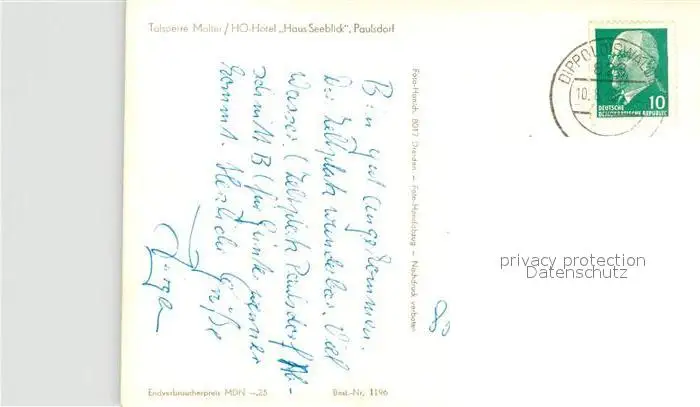 Talsperre Malter / HO-Hotel „Haus Seeblick", Paulsdorf
Bin gut angekommen.
Der Zeltplatz wunderbar. Viel
Wasser. (Zeltplatz Paulsdorf Ab-
schnitt B) für Günter wenn er
kommt. Herzliche Grüße
Foto-Hanich, 8017 Dresden — Foto-Handabzug — Nachdruck verboten
Endverbraucherpreis MDN —,25 Best.-Nr. 1196
DIPPOLDISWALDE
10.8.
10
DEUTSCHE
DEMOKRATISCHE REPUBLIK
privacy protection
Datenschutz